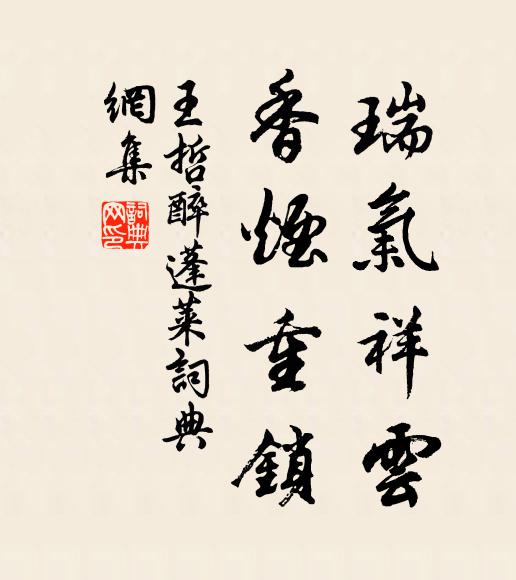 瑞氣祥雲
香煙重鎖
王哲醉蓬萊詞典
網集
詞典
网印